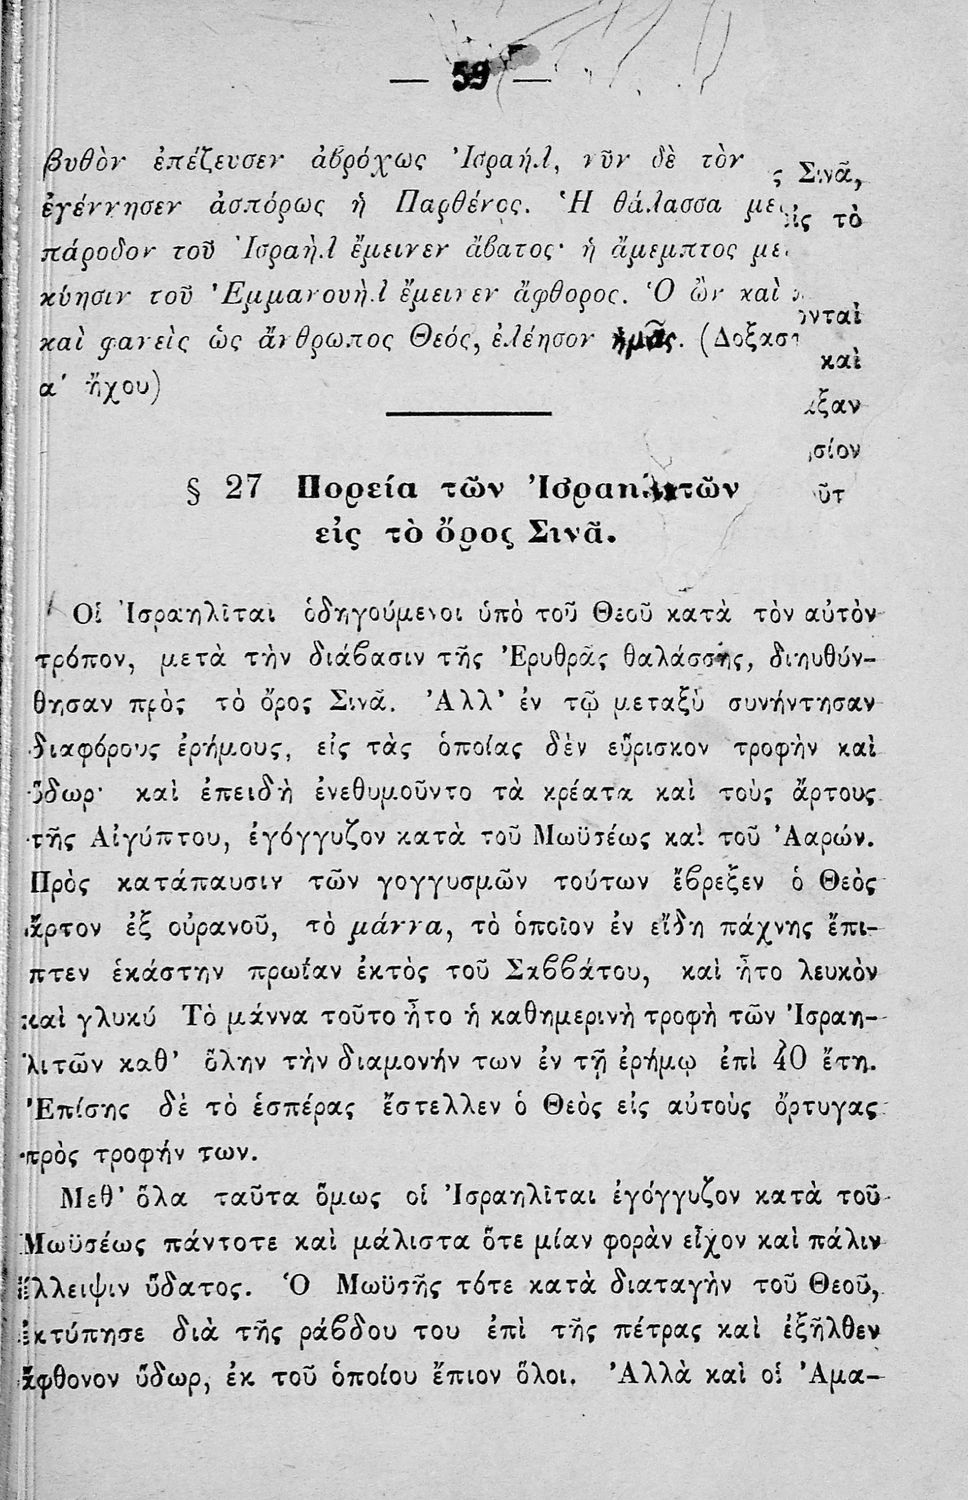 — 59 —
βυθὸν ἐπέζευσεν ἀβρόχως Ἰσραήλ, νῦν δὲ τὸν
ἐγέννησεν ἀσπόρως ἡ Παρθένος. Ἡ θάλασσα με
πάροδον τοῦ Ἰσραὴλ ἔμεινεν ἄβατος· ἡ ἄμεμπτος με
κύησιν τοῦ Ἐμμανουὴλ ἔμεινεν ἄφθορος. Ὁ ὢν καὶ
καὶ φανεὶς ὡς ἄνθρωπος Θεός, ἐλέησον ἡμᾶς. (Δοξαστ
α΄ ἤχου)
ς Σινᾶ,
εἰς τὸ
ονται
καὶ
αξαν
σίον
ῦτ
§ 27 Πορεία τῶν Ἰσραηλιτῶν
εἰς τὸ ὄρος Σινᾶ.
Οἱ Ἰσραηλῖται ὁδηγούμενοι ὑπὸ τοῦ Θεοῦ κατὰ τὸν αὐτὸν
τρόπον, μετὰ τὴν διάβασιν τῆς Ἐρυθρᾶς θαλάσσης, διηυθύν-
θησαν πρὸς τὸ ὄρος Σινᾶ. Ἀλλ' ἐν τῷ μεταξὺ συνήντησαν
διαφόρους ἐρήμους, εἰς τὰς ὁποίας δὲν εὕρισκον τροφὴν καὶ
ὕδωρ· καὶ ἐπειδὴ ἐνεθυμοῦντο τὰ κρέατα καὶ τοὺς ἄρτους
τῆς Αἰγύπτου, ἐγόγγυζον κατὰ τοῦ Μωϋσέως καὶ τοῦ Ἀαρών.
Πρὸς κατάπαυσιν τῶν γογγυσμῶν τούτων ἔβρεξεν ὁ Θεὸς
ἄρτον ἐξ οὐρανοῦ, τὸ μάννα, τὸ ὁποῖον ἐν εἴδη πάχνης ἔπι-
πτεν ἑκάστην πρωΐαν ἐκτὸς τοῦ Σαββάτου, καὶ ἦτο λευκὸν
καὶ γλυκύ Τὸ μάννα τοῦτο ἦτο ἡ καθημερινὴ τροφὴ τῶν Ἰσραη-
λιτῶν καθ' ὅλην τὴν διαμονήν των ἐν τῇ ἐρήμῳ ἐπὶ 40 ἔτη.
Ἐπίσης δὲ τὸ ἑσπέρας ἔστελλεν ὁ Θεὸς εἰς αὐτοὺς ὄρτυγας
πρὸς τροφήν των.
Μεθ' ὅλα ταῦτα ὅμως οἱ Ἰσραηλῖται ἐγόγγυζον κατὰ τοῦ
Μωϋσέως πάντοτε καὶ μάλιστα ὅτε μίαν φορὰν εἶχον καὶ πάλιν
ἔλλειψιν ὕδατος. Ὁ Μωϋσῆς τότε κατὰ διαταγὴν τοῦ Θεοῦ,
ἐκτύπησε διὰ τῆς ράβδου του ἐπὶ τῆς πέτρας καὶ ἐξῆλθεν
ἄφθονον ὕδωρ, ἐκ τοῦ ὁποίου ἔπιον ὅλοι. Ἀλλὰ καὶ οἱ Ἀμα-